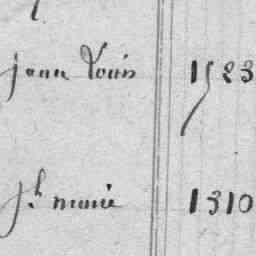 jean Louis 1523
jh marie 1310